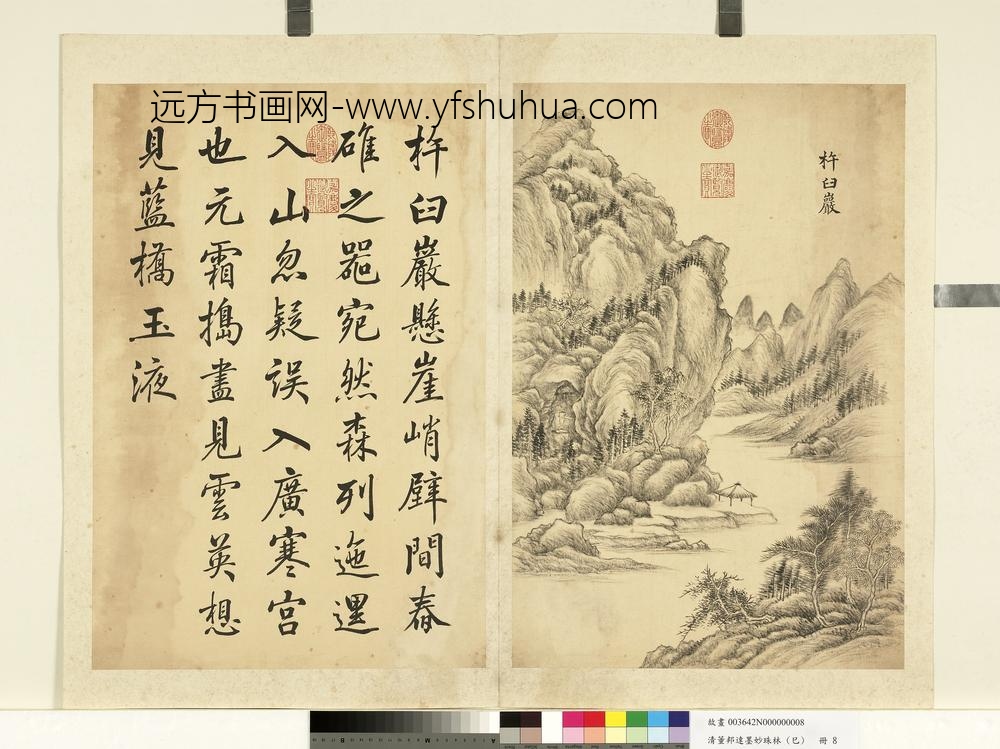 远方书画网-www.yfshuhua.com
杵臼巖
杵臼巖懸崖峭壁間舂
碓之器宛然森列迤邐
入山忽疑誤入廣寒宮
也元霜搗盡見雲英想
見藍橋玉液
故畫 003642N000000008
清董邦達墨妙珠林(巳) 冊 8